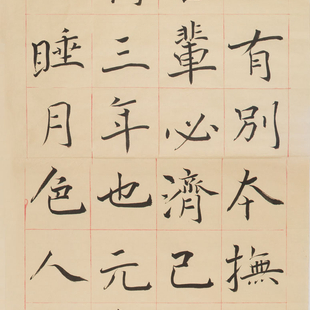 有別本撫
輩必濟己
三年也元
睡月色人